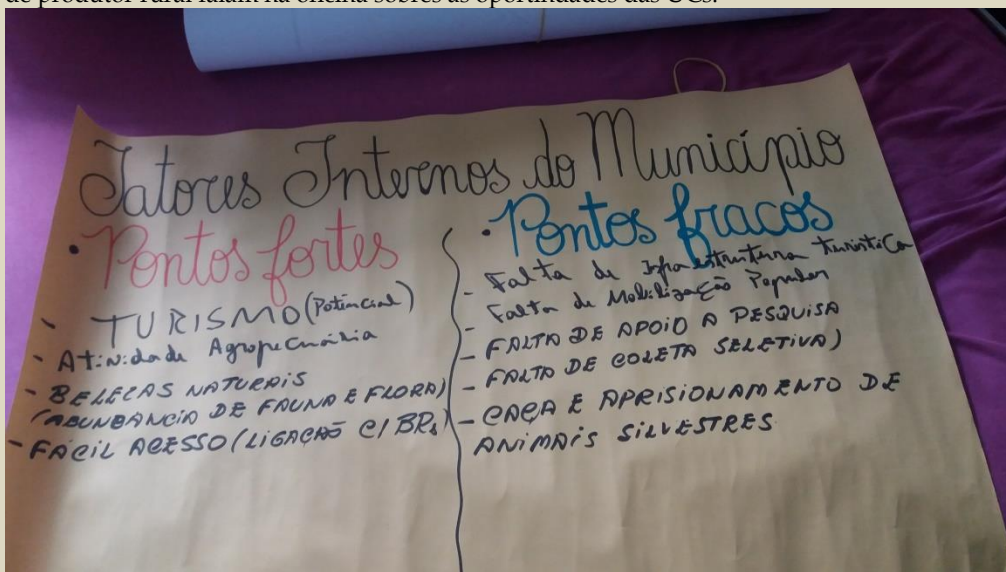 de produtor rural falam na oficina sobres as oportindades das UCs.
Fatores Internos do Município
• Pontos fortes
- TURISMO (Potencial)
- Atividade Agropecuária
- BELEZAS NATURAIS
(ABUNDANCIA DE FAUNA E FLORA)
- FÁCIL ACESSO (LIGAÇÃO C/ BRs)
• Pontos fracos
- Falta de Infraestrutura turística
- Falta de Mobilização Popular
- FALTA DE APOIO A PESQUISA
- FALTA DE COLETA SELETIVA)
- CAÇA E APRISIONAMENTO DE
ANIMAIS SILVESTRES